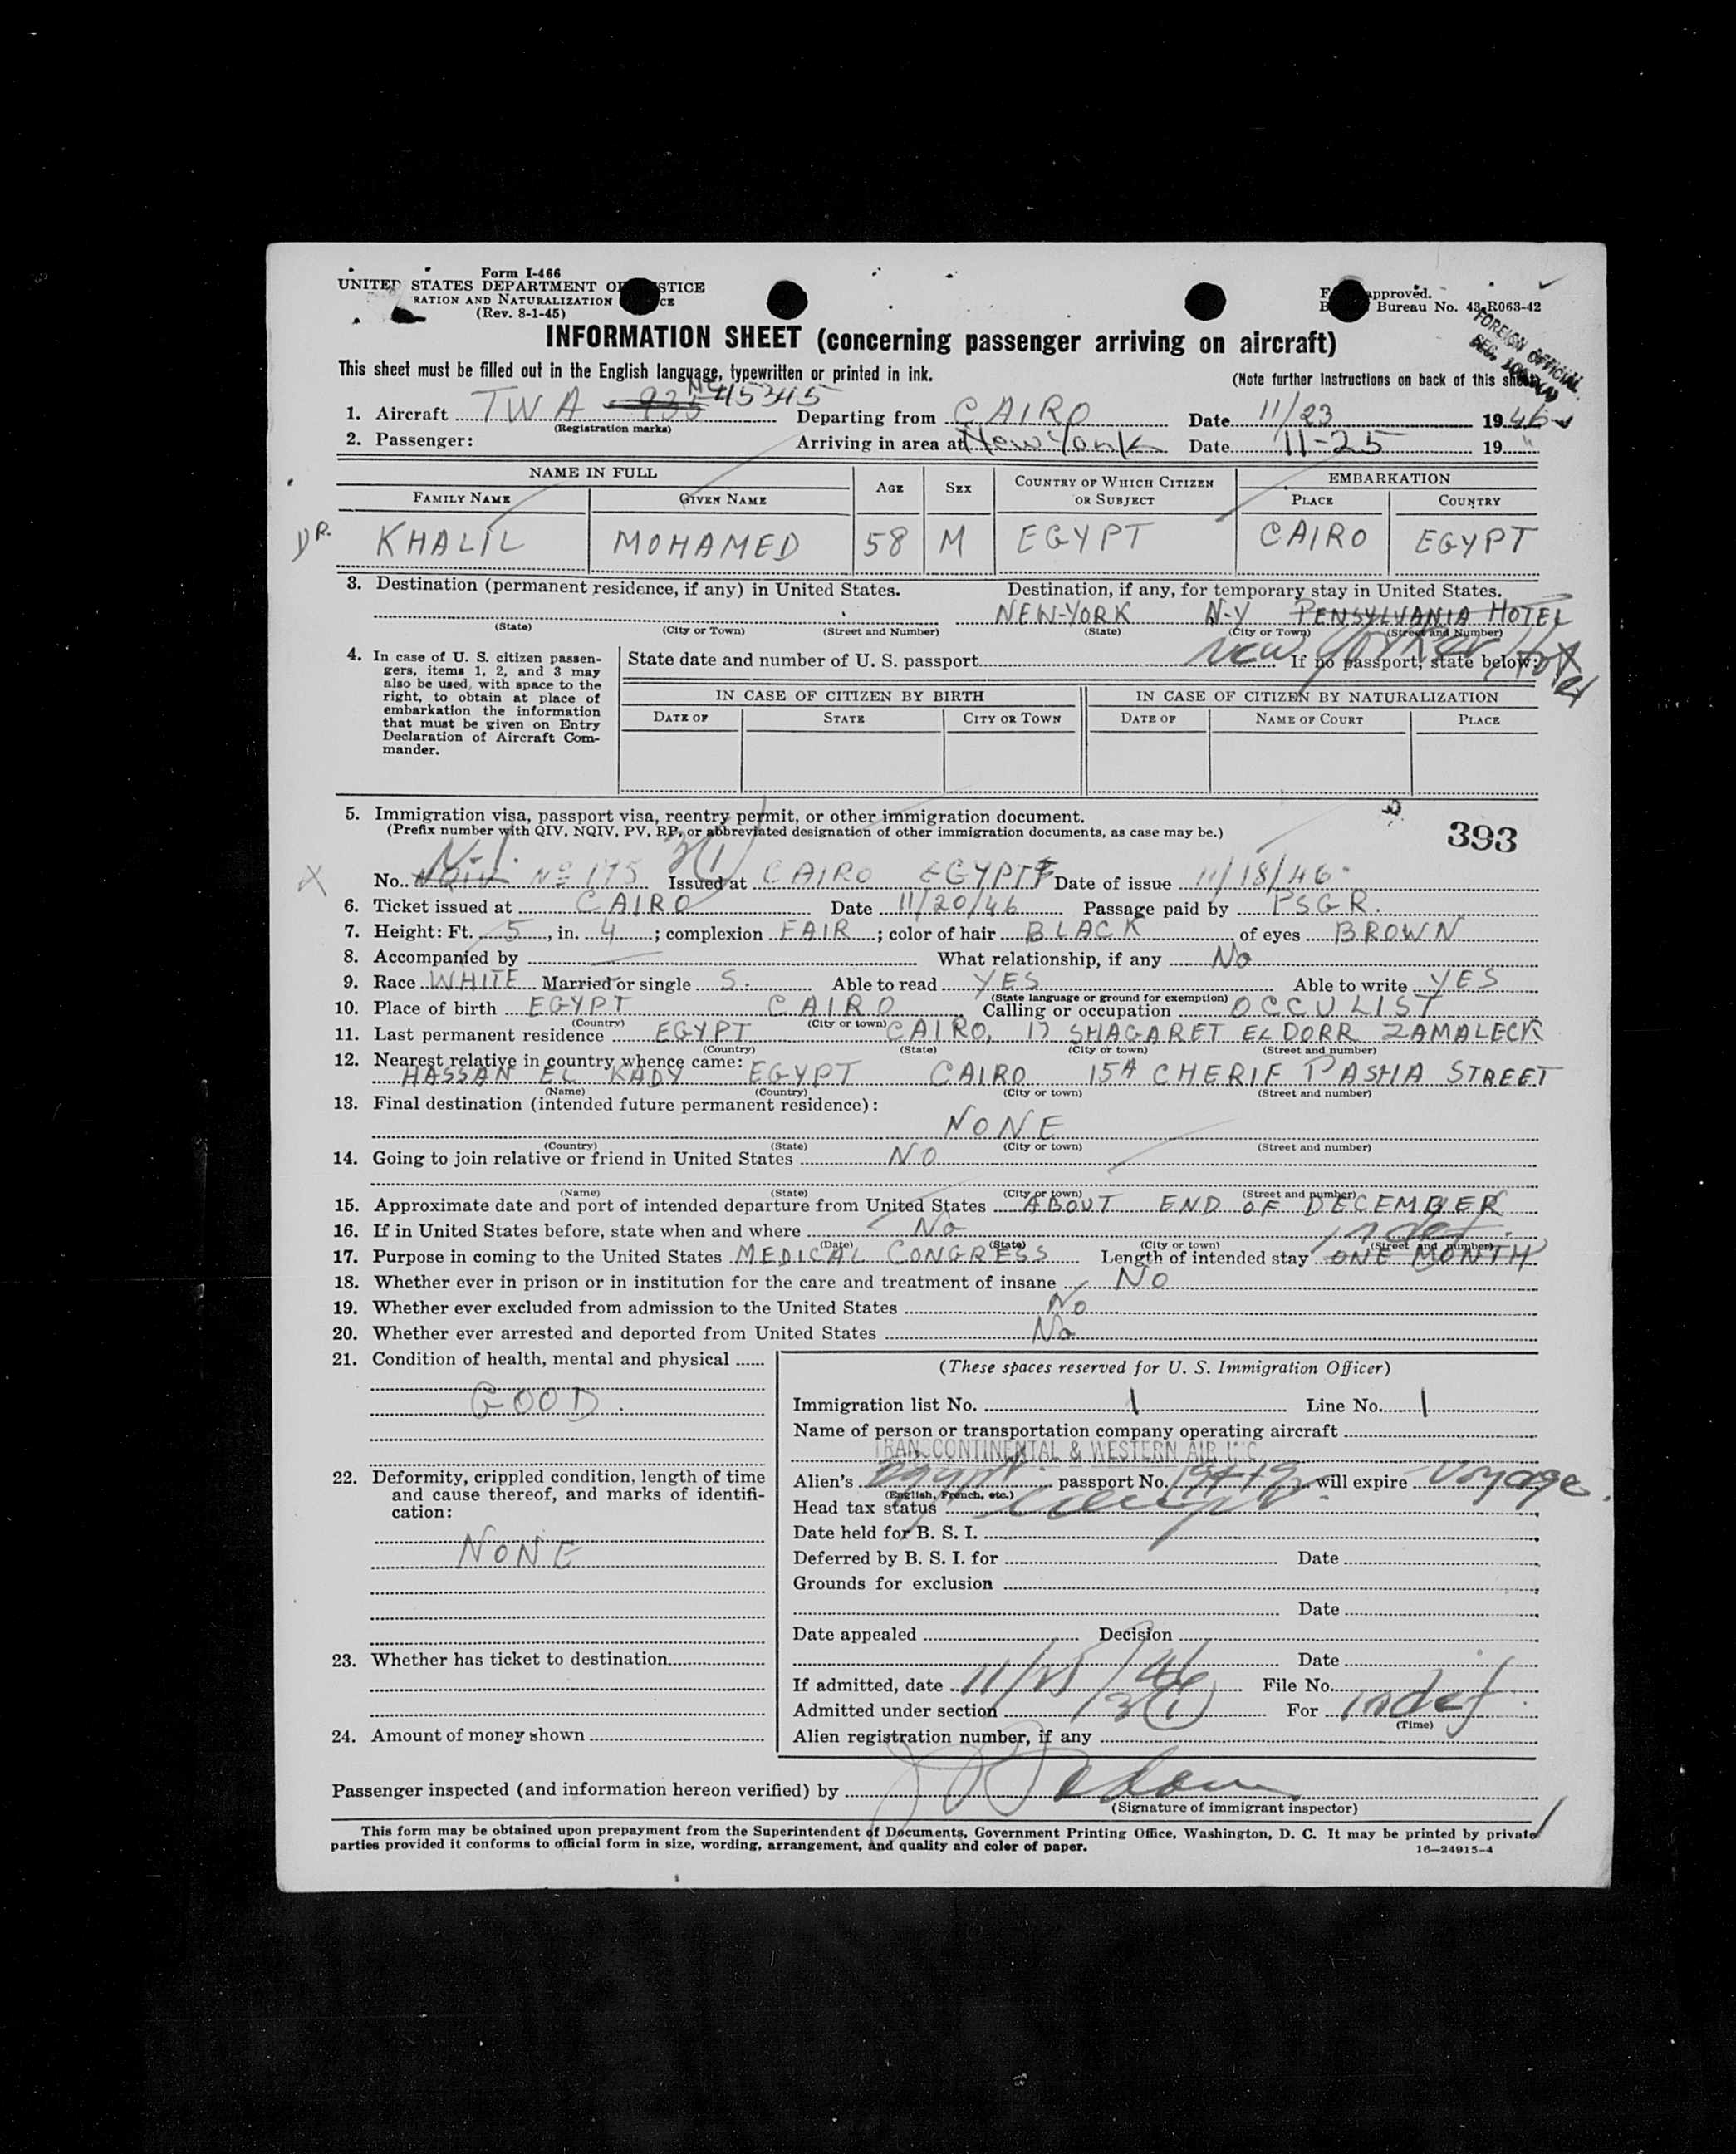 Form I-466
UNITED STATES DEPARTMENT OF JUSTICE
RATION AND NATURALIZATION CE
(Rev. 8-1-45)
pproved.
Bureau No. 43-R063-42
FOREIGN OFFICIAL
INFORMATION SHEET (concerning passenger arriving on aircraft)
This sheet must be filled out in the English language, typewritten or printed in ink.
(Note further Instructions on back of this sheet)
1. Aircraft TWA 935 NC 45345 Departing from CAIRO Date 11/23 1946
(Registration marks)
2. Passenger: Arriving in area at New York Date 11-25 19 "
NAME IN FULL AGE SEX COUNTRY OF WHICH CITIZEN OR SUBJECT EMBARKATION
FAMILY NAME GIVEN NAME PLACE COUNTRY
DR. KHALIL MOHAMED 58 M EGYPT CAIRO EGYPT
3. Destination (permanent residence, if any) in United States. Destination, if any, for temporary stay in United States.
NEW-YORK N-Y PENSYLVANIA HOTEL
(State) (City or Town) (Street and Number) (State) (City or Town) (Street and Number)
New Yorker Hotel
4. In case of U. S. citizen passengers, items 1, 2, and 3 may also be used, with space to the right, to obtain at place of embarkation the information that must be given on Entry Declaration of Aircraft Commander.
State date and number of U. S. passport If no passport, state below:
IN CASE OF CITIZEN BY BIRTH IN CASE OF CITIZEN BY NATURALIZATION
DATE OF STATE CITY OR TOWN DATE OF NAME OF COURT PLACE
5. Immigration visa, passport visa, reentry permit, or other immigration document.
(Prefix number with QIV, NQIV, PV, RP, or abbreviated designation of other immigration documents, as case may be.)
393
N-I. 3(1)
No. NQIV Nº 175 Issued at CAIRO EGYPT Date of issue 11/18/46
6. Ticket issued at CAIRO Date 11/20/46 Passage paid by PSGR.
7. Height: Ft. 5, in. 4; complexion FAIR; color of hair BLACK of eyes BROWN
8. Accompanied by — What relationship, if any No
9. Race WHITE Married or single S. Able to read YES Able to write YES
(State language or ground for exemption)
10. Place of birth EGYPT CAIRO Calling or occupation OCCULIST
(Country) (City or town)
11. Last permanent residence EGYPT CAIRO, 17 SHAGARET EL DORR ZAMALECK
(Country) (State) (City or town) (Street and number)
12. Nearest relative in country whence came:
HASSAN EL KADY EGYPT CAIRO 15A CHERIF PASHA STREET
(Name) (Country) (City or town) (Street and number)
13. Final destination (intended future permanent residence):
NONE
(Country) (State) (City or town) (Street and number)
14. Going to join relative or friend in United States NO
(Name) (State) (City or town) (Street and number)
15. Approximate date and port of intended departure from United States ABOUT END OF DECEMBER
16. If in United States before, state when and where No
(Date) (State) (City or town) (Street and number)
indef.
17. Purpose in coming to the United States MEDICAL CONGRESS Length of intended stay ONE MONTH
18. Whether ever in prison or in institution for the care and treatment of insane No
19. Whether ever excluded from admission to the United States No
20. Whether ever arrested and deported from United States No
21. Condition of health, mental and physical
GOOD.
22. Deformity, crippled condition, length of time and cause thereof, and marks of identification:
NONE
23. Whether has ticket to destination
24. Amount of money shown
(These spaces reserved for U. S. Immigration Officer)
Immigration list No. 1 Line No. 1
Name of person or transportation company operating aircraft
TRANSCONTINENTAL & WESTERN AIR INC
Alien's Egypt passport No. will expire Voyage.
(English, French, etc.)
Head tax status
Date held for B. S. I.
Deferred by B. S. I. for Date
Grounds for exclusion
Date
Date appealed Decision
Date
If admitted, date 11/25/46 File No.
Admitted under section 3(1) For indef
(Time)
Alien registration number, if any
Passenger inspected (and information hereon verified) by
(Signature of immigrant inspector)
This form may be obtained upon prepayment from the Superintendent of Documents, Government Printing Office, Washington, D. C. It may be printed by private
parties provided it conforms to official form in size, wording, arrangement, and quality and color of paper.
16—24915-4